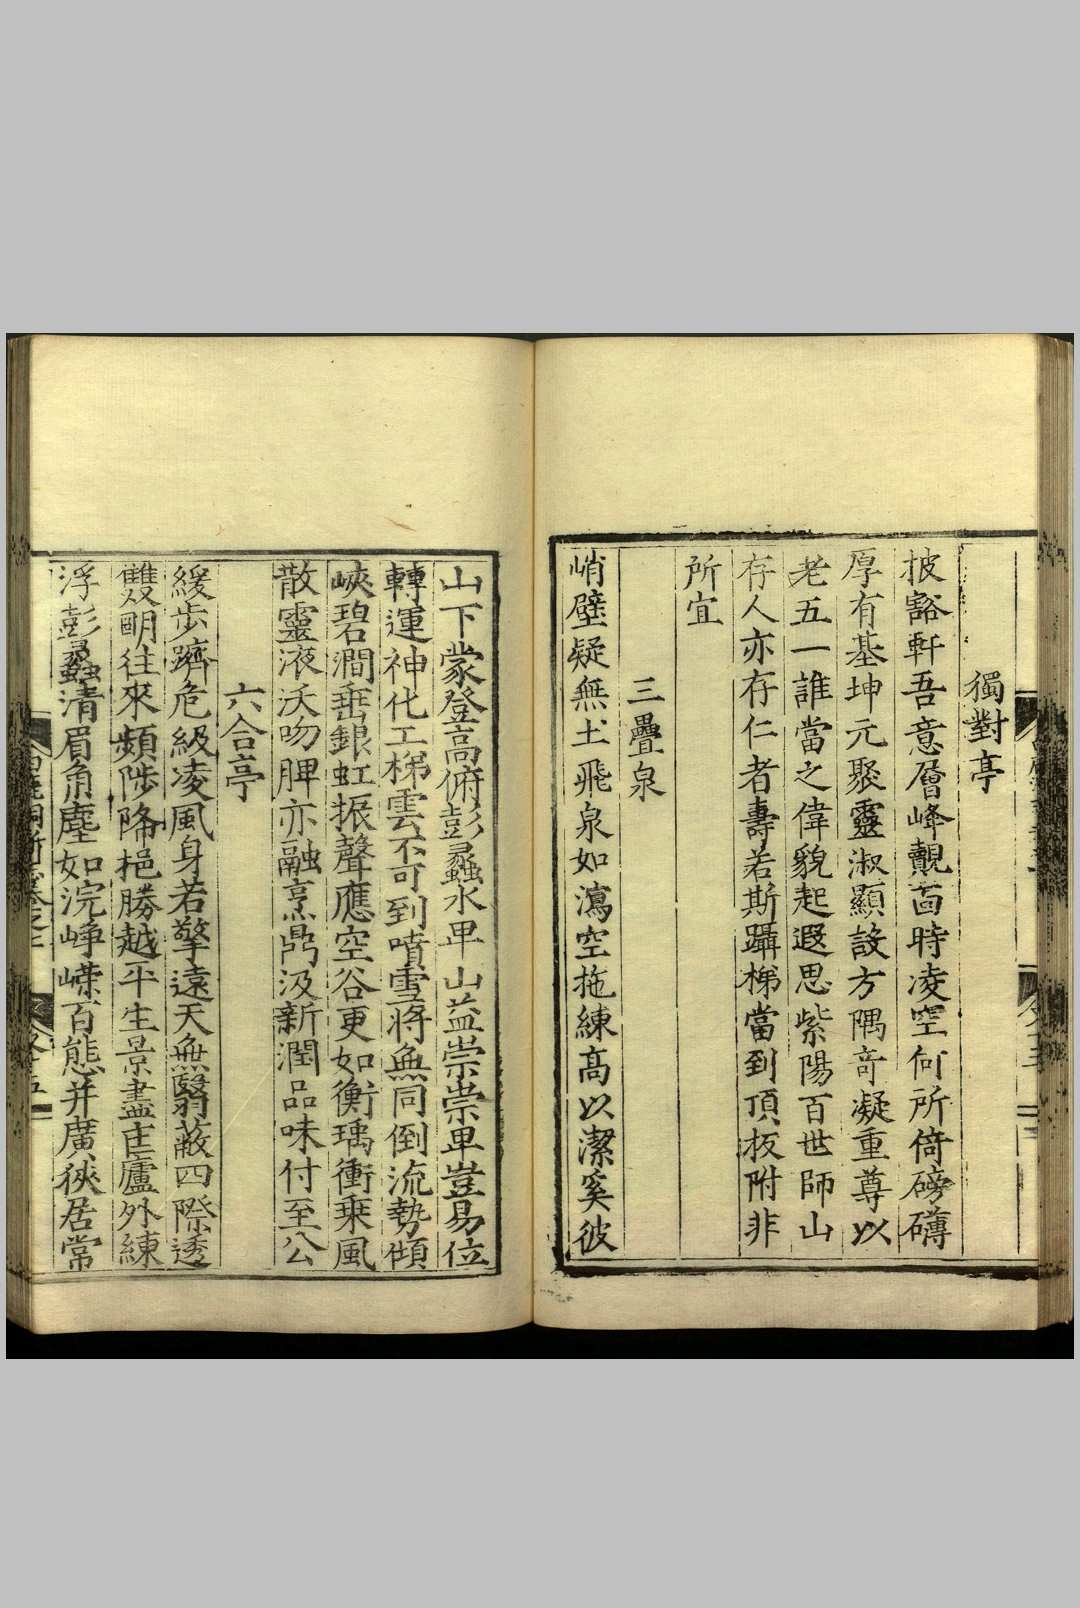 獨對亭
披豁軒吾意層峰覿靣時凌空何所倚磅礴
厚有基坤元聚靈淑顯設方隅竒凝重尊以
老五一誰當之偉貌起遐思紫陽百世師山
存人亦存仁者壽若斯躡梯當到頂扳附非
所宜
三疊泉
峭壁疑無土飛泉如瀉空拖練高以潔奚彼
山下蒙登高俯彭蠡水卑山益崇崇卑豈易位
轉運神化工梯雲不可到噴雪將無同倒流勢傾
峽碧澗垂銀虹振聲應空谷更如衡瑀衝乗風
散靈液沃吻脾亦融烹鼎汲新潤品味付至公
六合亭
緩步躋危級凌風身若擎遠天無翳蔽四際透
雙明往來頻陟降挹勝越平生景盡匡廬外練
浮彭蠡清眉角塵如浣崢嶸百態并廣狹居常